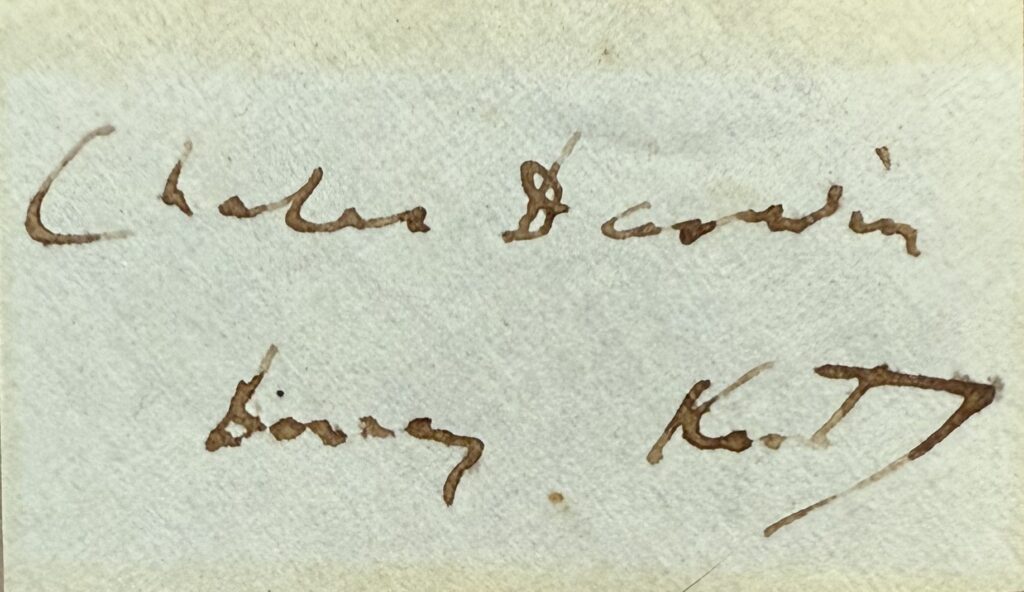 Charles Darwin
Down Kent